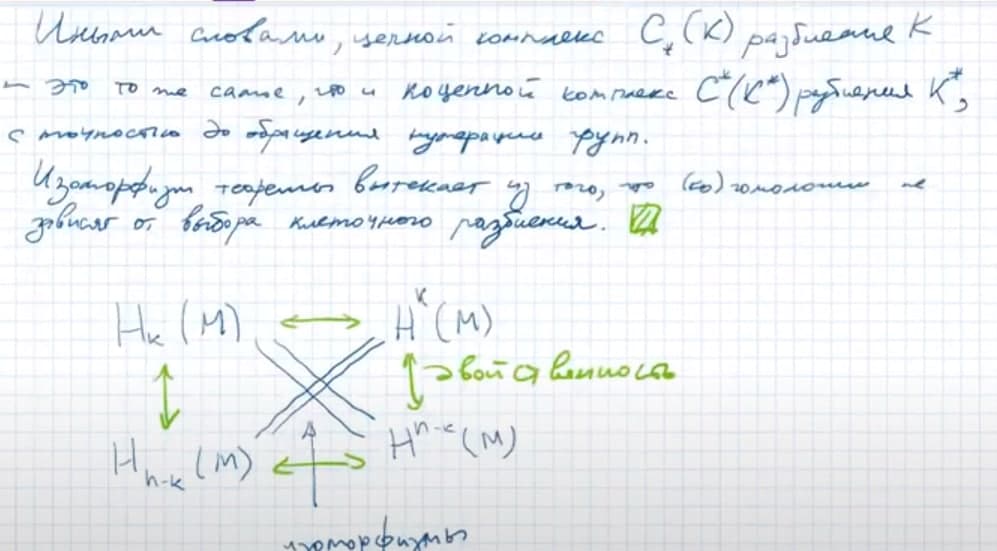 Иными словами, цепной комплекс C_*(K) разбиение K
— это то же самое, что и коцепной комплекс C^*(K^*) разбиения K^*,
с точностью до обращения нумерации групп.
Изоморфизм теоремы вытекает из того, что (ко)гомологии не
зависят от выбора клеточного разбиения.
H_k(M) ↔ H^k(M)
двойственность
H_{n-k}(M) ↔ H^{n-k}(M)
изоморфизмы